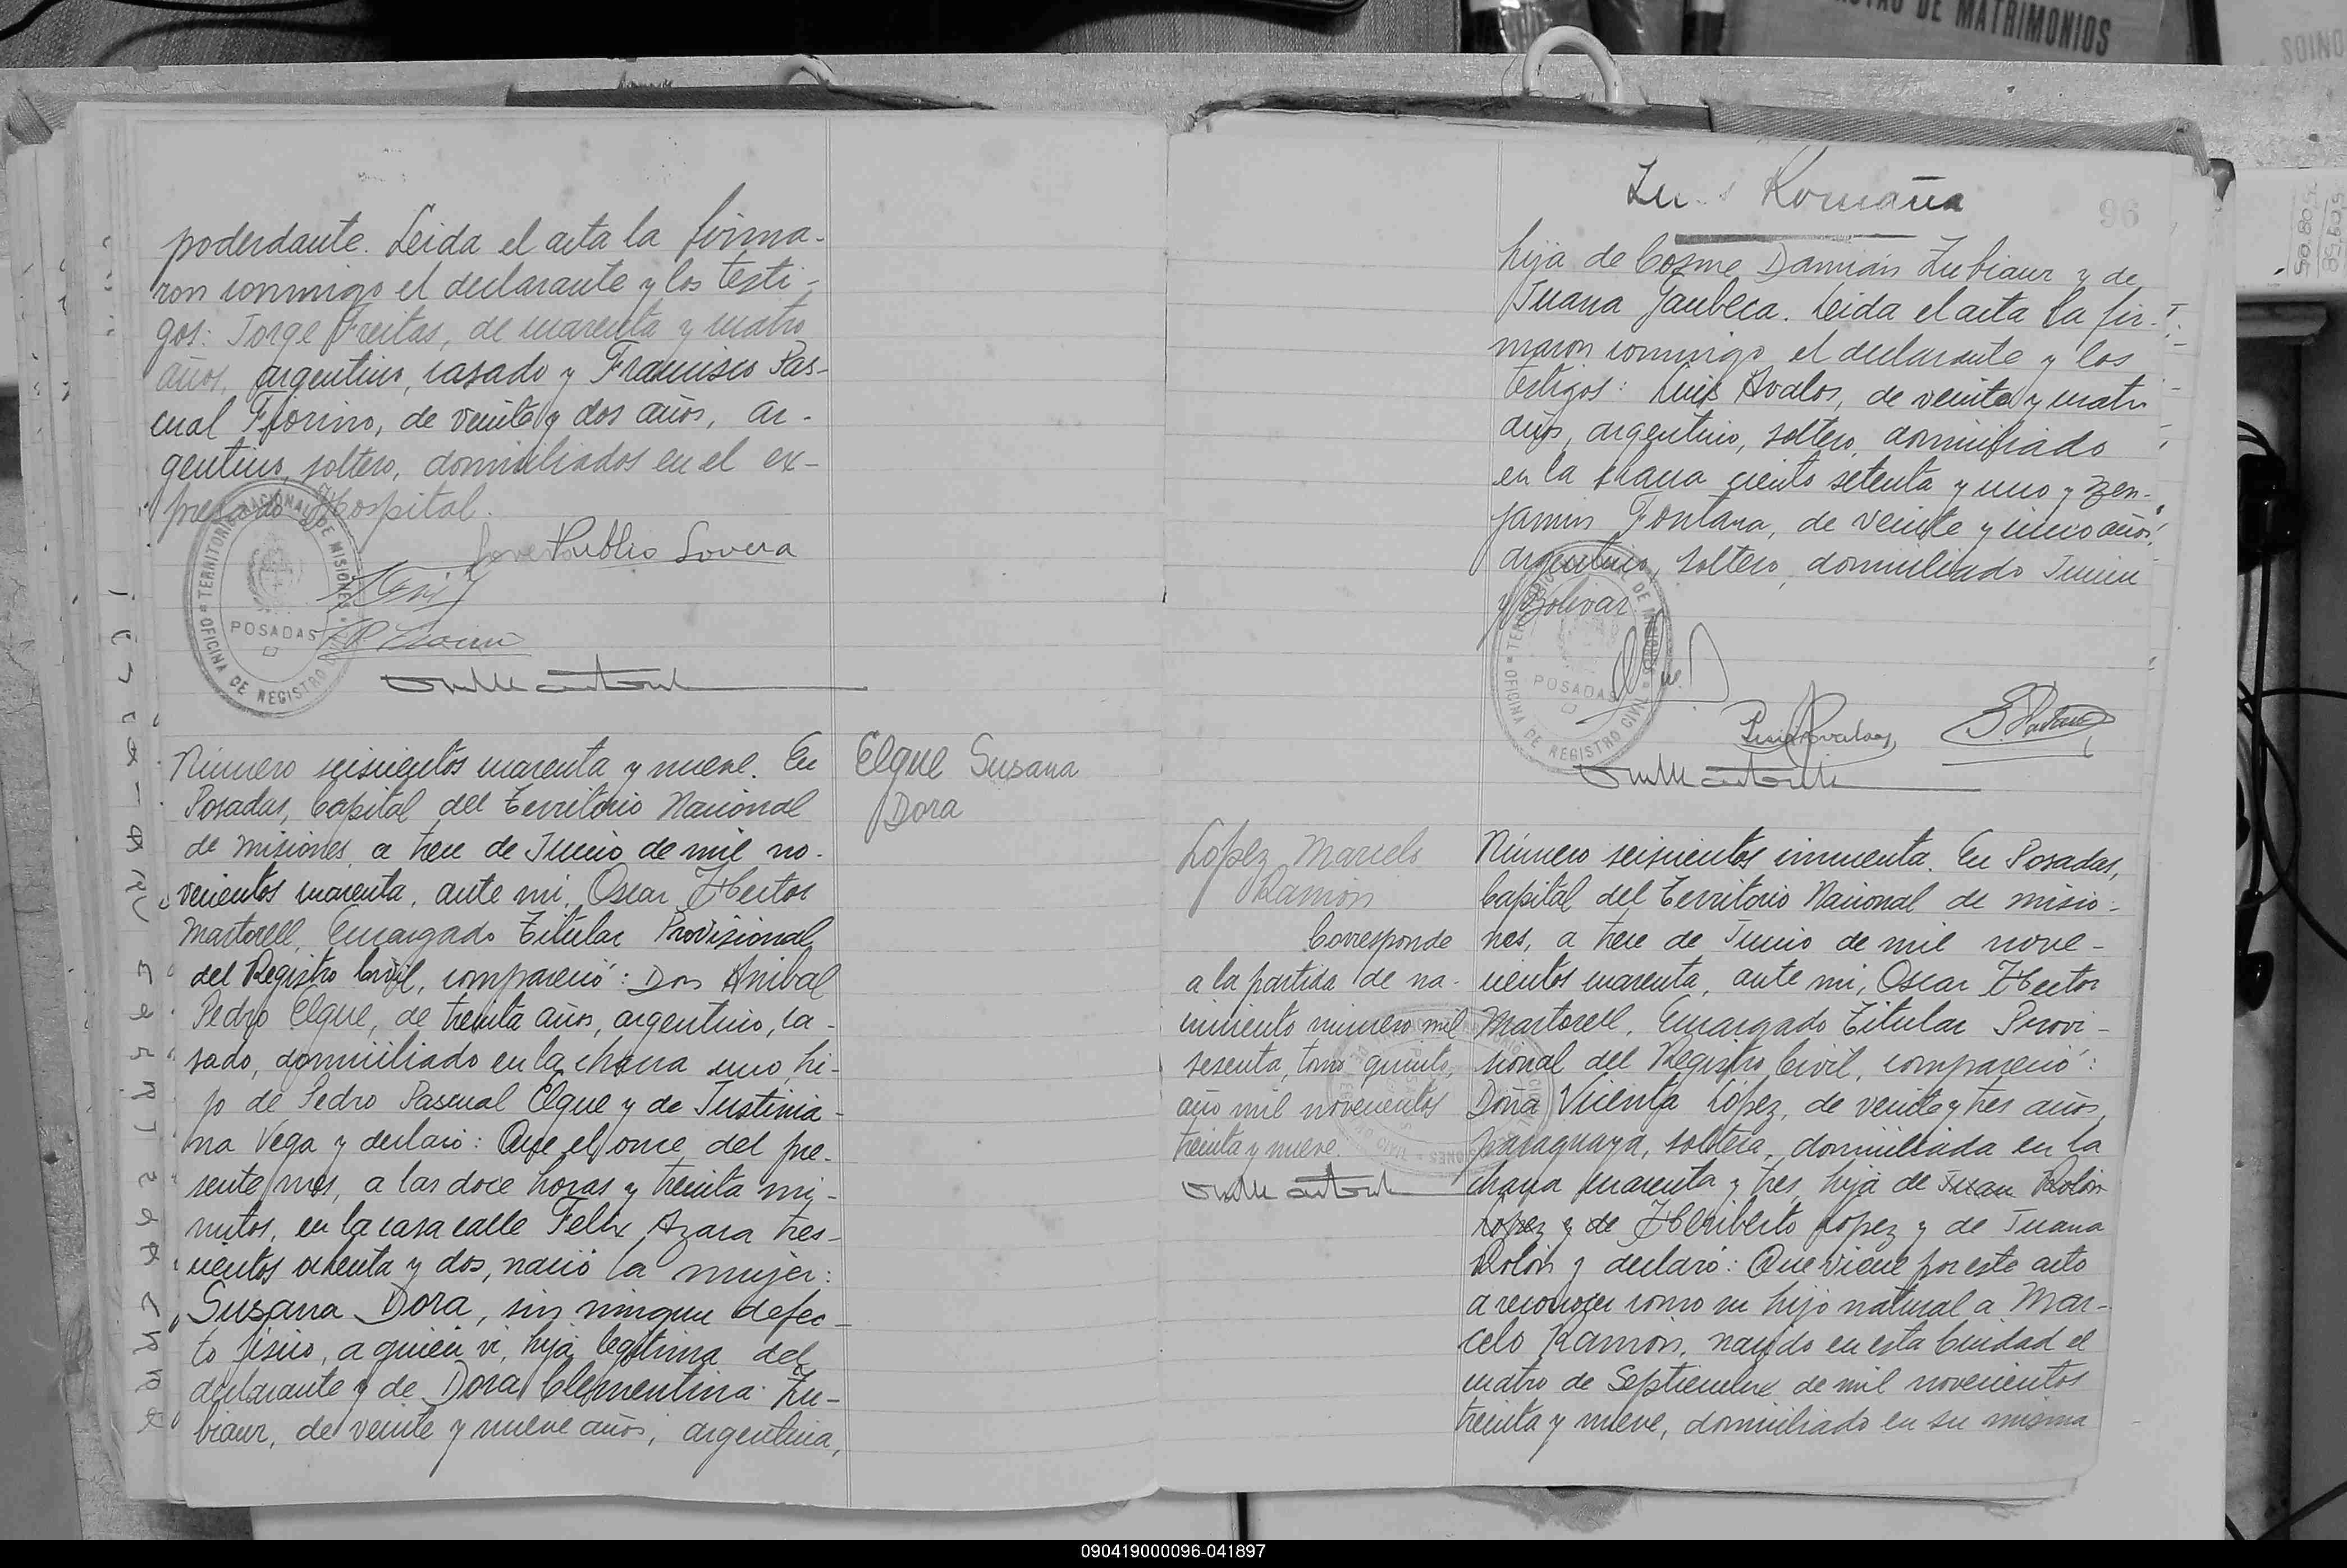 ACTAS DE MATRIMONIOS
poderdante. Leida el acta la firma-
ron conmigo el declarante y los testi-
gos: Jorge Freitas, de cuarenta y cuatro
años, argentino, casado y Francisco Pas-
cual Fiorino, de veinte y dos años, ar-
gentino, soltero, domiciliados en el ex-
presado Hospital.
Publio Lovera
TERRITORIO NACIONAL DE MISIONES
POSADAS
OFICINA DE REGISTRO CIVIL
Número seiscientos cuarenta y nueve. En
Posadas, Capital del Territorio Nacional
de Misiones, a trece de Junio de mil no-
vecientos cuarenta, ante mi, Oscar Hector
Martorell, Encargado Titular Provisional
del Registro Civil, compareció: Don Anibal
Pedro Elgue, de treinta años, argentino, ca-
sado, domiciliado en la chacra uno, hi-
jo de Pedro Pascual Elgue y de Justinia-
na Vega y declaró: Que el once del pre-
sente mes, a las doce horas y treinta mi-
nutos, en la casa calle Felix Azara tres-
cientos ochenta y dos, nació la mujer:
Susana Dora, sin ningun defec-
to fisico, a quien vi, hija legitima del
declarante y de Dora Clementina Zu-
biaur, de veinte y nueve años, argentina,
Elgue Susana
Dora
Romaña
96
hija de Cosme Damián Zubiaur y de
Juana Gaubeca. Leida el acta la fir-
maron conmigo el declarante y los
testigos: Luis Avalos, de veinte y cuatro
años, argentino, soltero, domiciliado
en la chacra ciento setenta y uno y Ben-
jamin Fontana, de veinte y cinco años,
argentino, soltero, domiciliado Junin
y Bolivar.
POSADAS
OFICINA DE REGISTRO CIVIL
López Marcelo
Ramón
Corresponde
a la partida de na-
cimiento número mil
sesenta, tomo quinto,
año mil novecientos
treinta y nueve.
Número seiscientos cincuenta. En Posadas,
Capital del Territorio Nacional de Misio-
nes, a trece de Junio de mil nove-
cientos cuarenta, ante mi, Oscar Hector
Martorell, Encargado Titular Provi-
sional del Registro Civil, compareció:
Doña Vicenta López, de veinte y tres años,
paraguaya, soltera, domiciliada en la
chacra cuarenta y tres, hija de Juan Rolón
López y de Heriberto López y de Juana
Rolón y declaró: Que viene por este acto
a reconocer como su hijo natural a Mar-
celo Ramón, nacido en esta Ciudad el
cuatro de Septiembre de mil novecientos
treinta y nueve, domiciliado en su misma
090419000096-041897